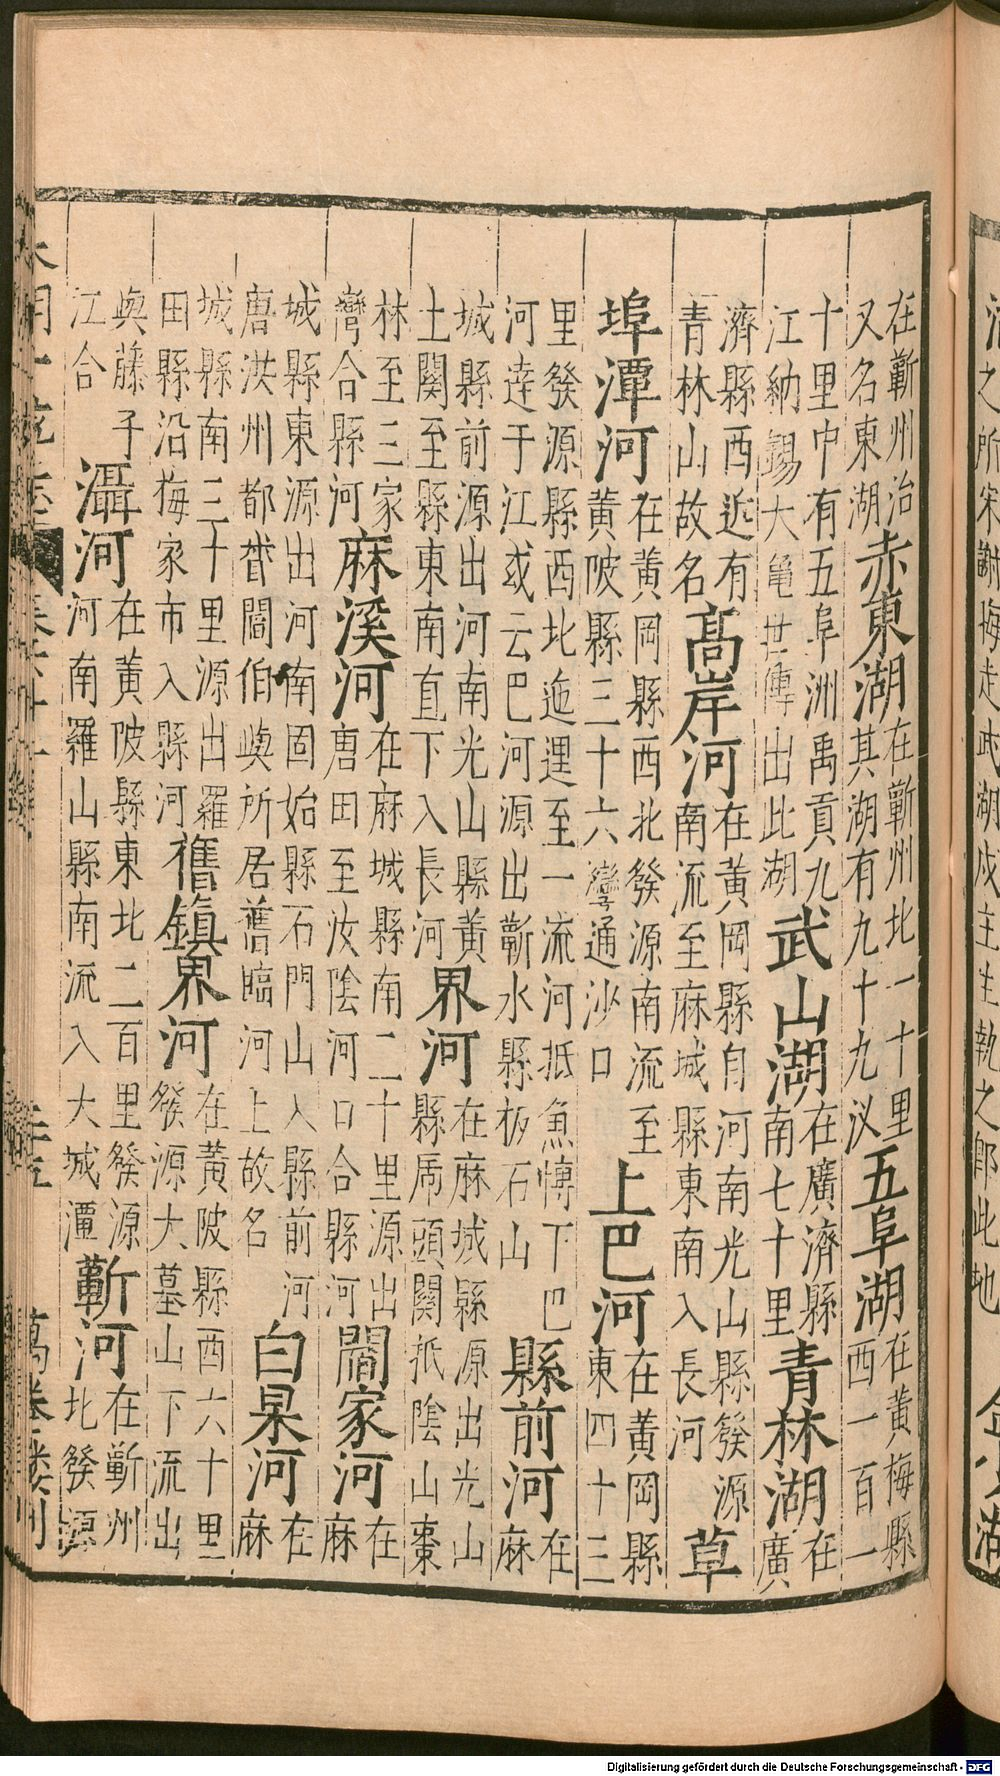 之所宋謝晦走武湖戍主生執之即此地
在蘄州治又名東湖赤東湖在蘄州北一十里其湖有九十九汊五阜湖在黃梅縣西一百一
十里中有五阜洲禹貢九江納錫大龜世傳出此湖武山湖在廣濟縣南七十里青林湖在廣
濟縣西近有青林山故名高岸河在黃岡縣自河南光山縣發源南流至麻城縣東南入長河草
埠潭河在黃岡縣西北發源南流至黃陂縣三十六灣通沙口上巴河在黃岡縣東四十三
里發源縣西北迤邐至一流河抵魚愽下巴河達于江或云巴河源出蘄水縣板石山縣前河在麻
城縣前源出河南光山縣黃土關至縣東南直下入長河界河在麻城縣源出光山縣虎頭關抵陰山棗
林至三家灣合縣河麻溪河在麻城縣南二十里源出唐田至汝陰河口合縣河閻家河在麻
城縣東源出河南固始縣石門山入縣前河唐洪州都督閻伯嶼所居舊臨河上故名白杲河在麻
城縣南三十里源出羅田縣沿梅家市入縣河舊鎮界河在黃陂縣西六十里發源大墓山下流出
與藤子江合灄河在黃陂縣東北二百里發源河南羅山縣南流入大城潭蘄河在蘄州北發源
萬卷樓刊
Digitalisierung gefördert durch die Deutsche Forschungsgemeinschaft - DFG